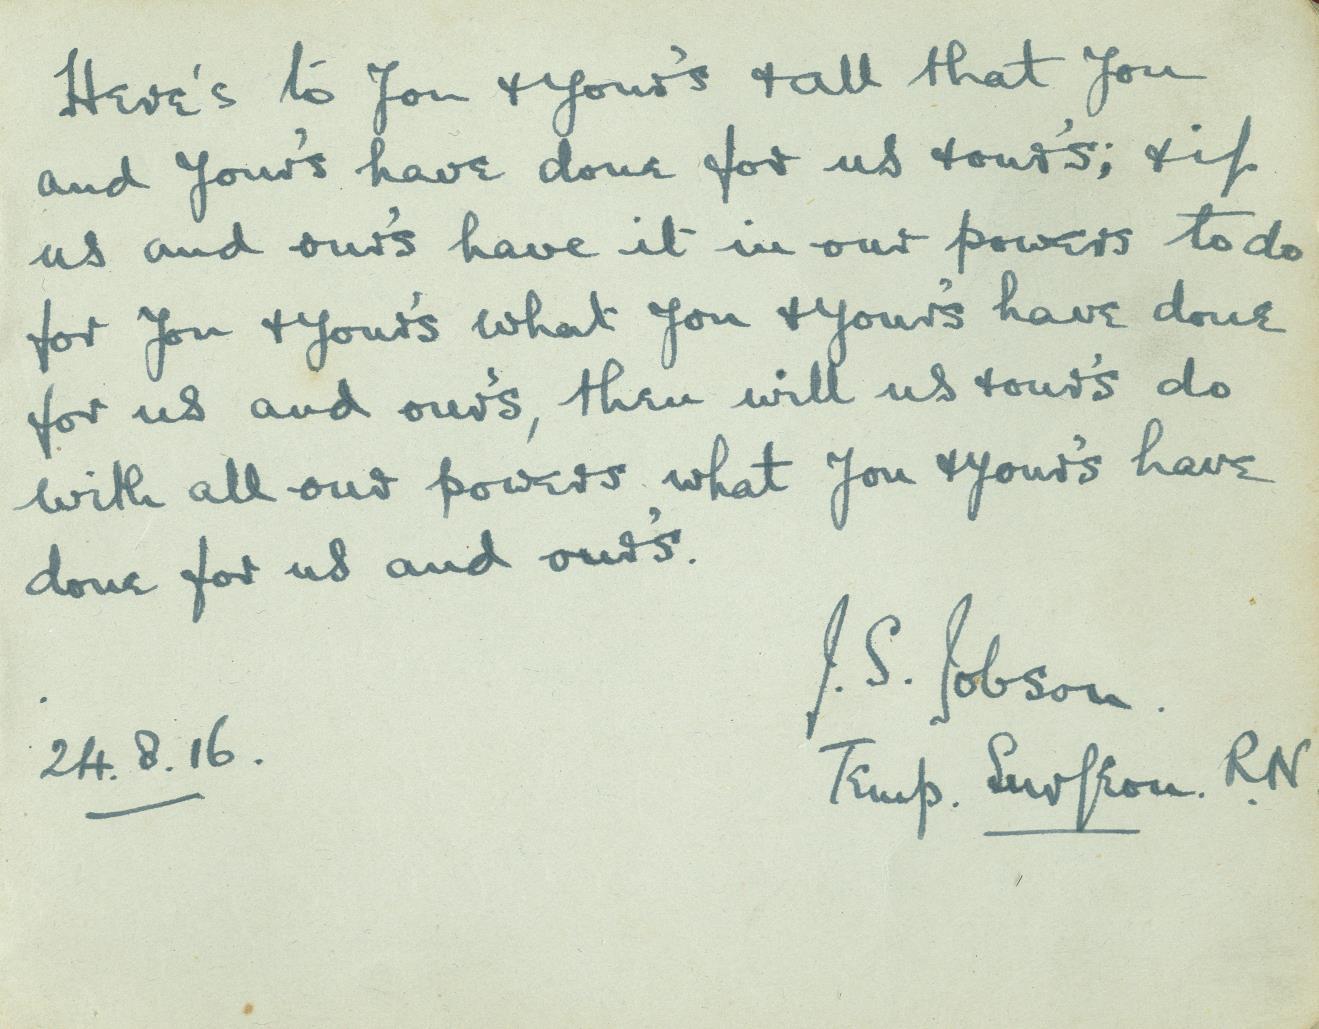 Here's to You & Your's & all that You
and Your's have done for us & our's; & if
us and our's have it in our powers to do
for You & Your's what You & Your's have done
for us and our's, then will us & our's do
with all our powers what You & Your's have
done for us and our's.
J. S. Jobson.
24.8.16.
Temp. Surgeon. R.N